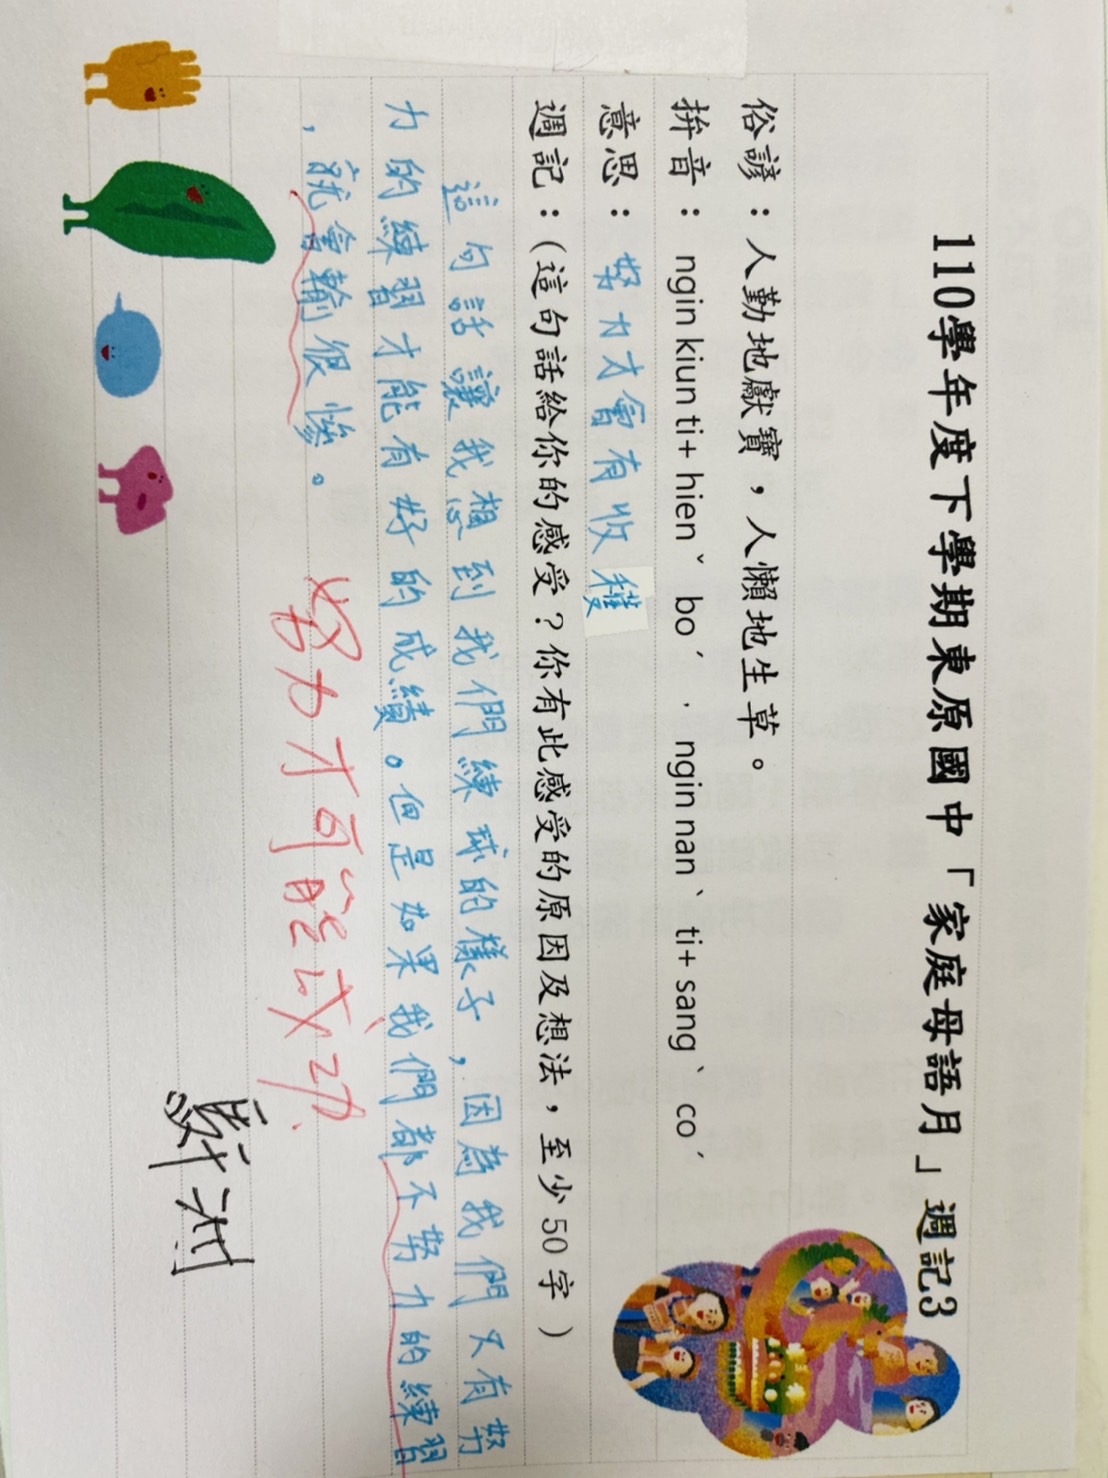 110學年度下學期東原國中「家庭母語月」週記3
俗諺：人勤地獻寶，人懶地生草。
拚音： ngin kiun ti+ hienˇ boˊ ，ngin nanˋ ti+ sangˋ coˊ
意思：努力才會有收穫
週記：(這句話給你的感受？你有此感受的原因及想法，至少50字 )
這句話讓我想到我們練球的樣子，因為我們又有努
力的練習才能有好的成績。但是如果我們都不努力的練習
，就會輸很慘。
努力才可能成功.